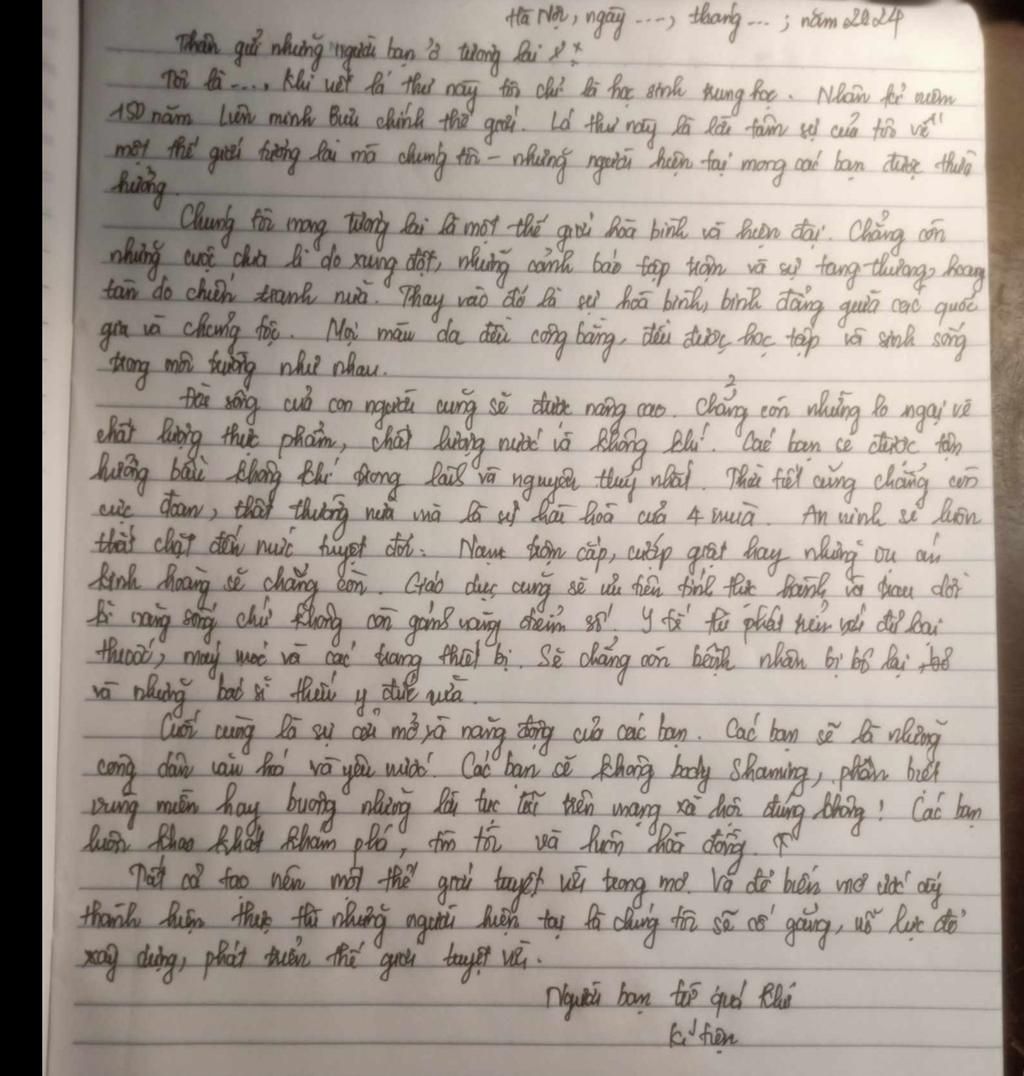 Hà Nội, ngày ..., tháng ...; năm 2024
Thân gửi những người bạn ở tương lai
Tôi là ..., khi viết lá thư này tôi chỉ là học sinh trung học. Nhân kỉ niệm
150 năm Liên minh Bưu chính thế giới. Lá thư này là lời tâm sự của tôi về
một thế giới tương lai mà chúng tôi - những người hiện tại mong các bạn được thừa
hưởng.
Chúng tôi mong tương lai là một thế giới hoà bình và hiện đại. Chẳng còn
những cuộc chia li do xung đột, những cảnh báo tập trận và sự tang-thương, hoang
tàn do chiến tranh nữa. Thay vào đó là sự hoà bình, bình đẳng giữa các quốc
gia và chủng tộc. Mọi màu da đều công bằng, đều được học tập và sinh sống
trong môi trường như nhau.
Đời sống của con người cũng sẽ được nâng cao. Chẳng còn những lo ngại về
chất lượng thực phẩm, chất lượng nước và không khí. Các bạn sẽ được tận
hưởng bầu không khí trong lành và nguyên thuỷ nhất. Thời tiết cũng chẳng còn
cực đoan, thất thường nữa mà là sự hài hoà của 4 mùa. An ninh sẽ luôn
thắt chặt đến mức tuyệt đối. Nạn trộm cắp, cướp giật hay những vụ án
kinh hoàng sẽ chẳng còn. Giáo dục cũng sẽ ưu tiên tính thực hành và trau dồi
kĩ năng sống chứ không còn gánh nặng điểm số. Y tế phát triển với đủ loại
thuốc, máy móc và các trang thiết bị. Sẽ chẳng còn bệnh nhân bị bỏ lại
và những bác sĩ thiếu y đức nữa.
Cuối cùng là sự cởi mở và năng động của các bạn. Các bạn sẽ là những
công dân văn hoá và yêu nước. Các bạn sẽ không body shaming, phân biệt
vùng miền hay buông những lời tục tĩu trên mạng xã hội đúng không! Các bạn
luôn khao khát khám phá, tìm tòi và luôn hoà đồng.
Tất cả tạo nên một thế giới tuyệt vời trong mơ. Và để biến mơ ước ấy
thành hiện thực thì những người hiện tại là chúng tôi sẽ cố gắng, nỗ lực để
xây dựng, phát triển thế giới tuyệt vời.
Người bạn từ quá khứ
Kí tên